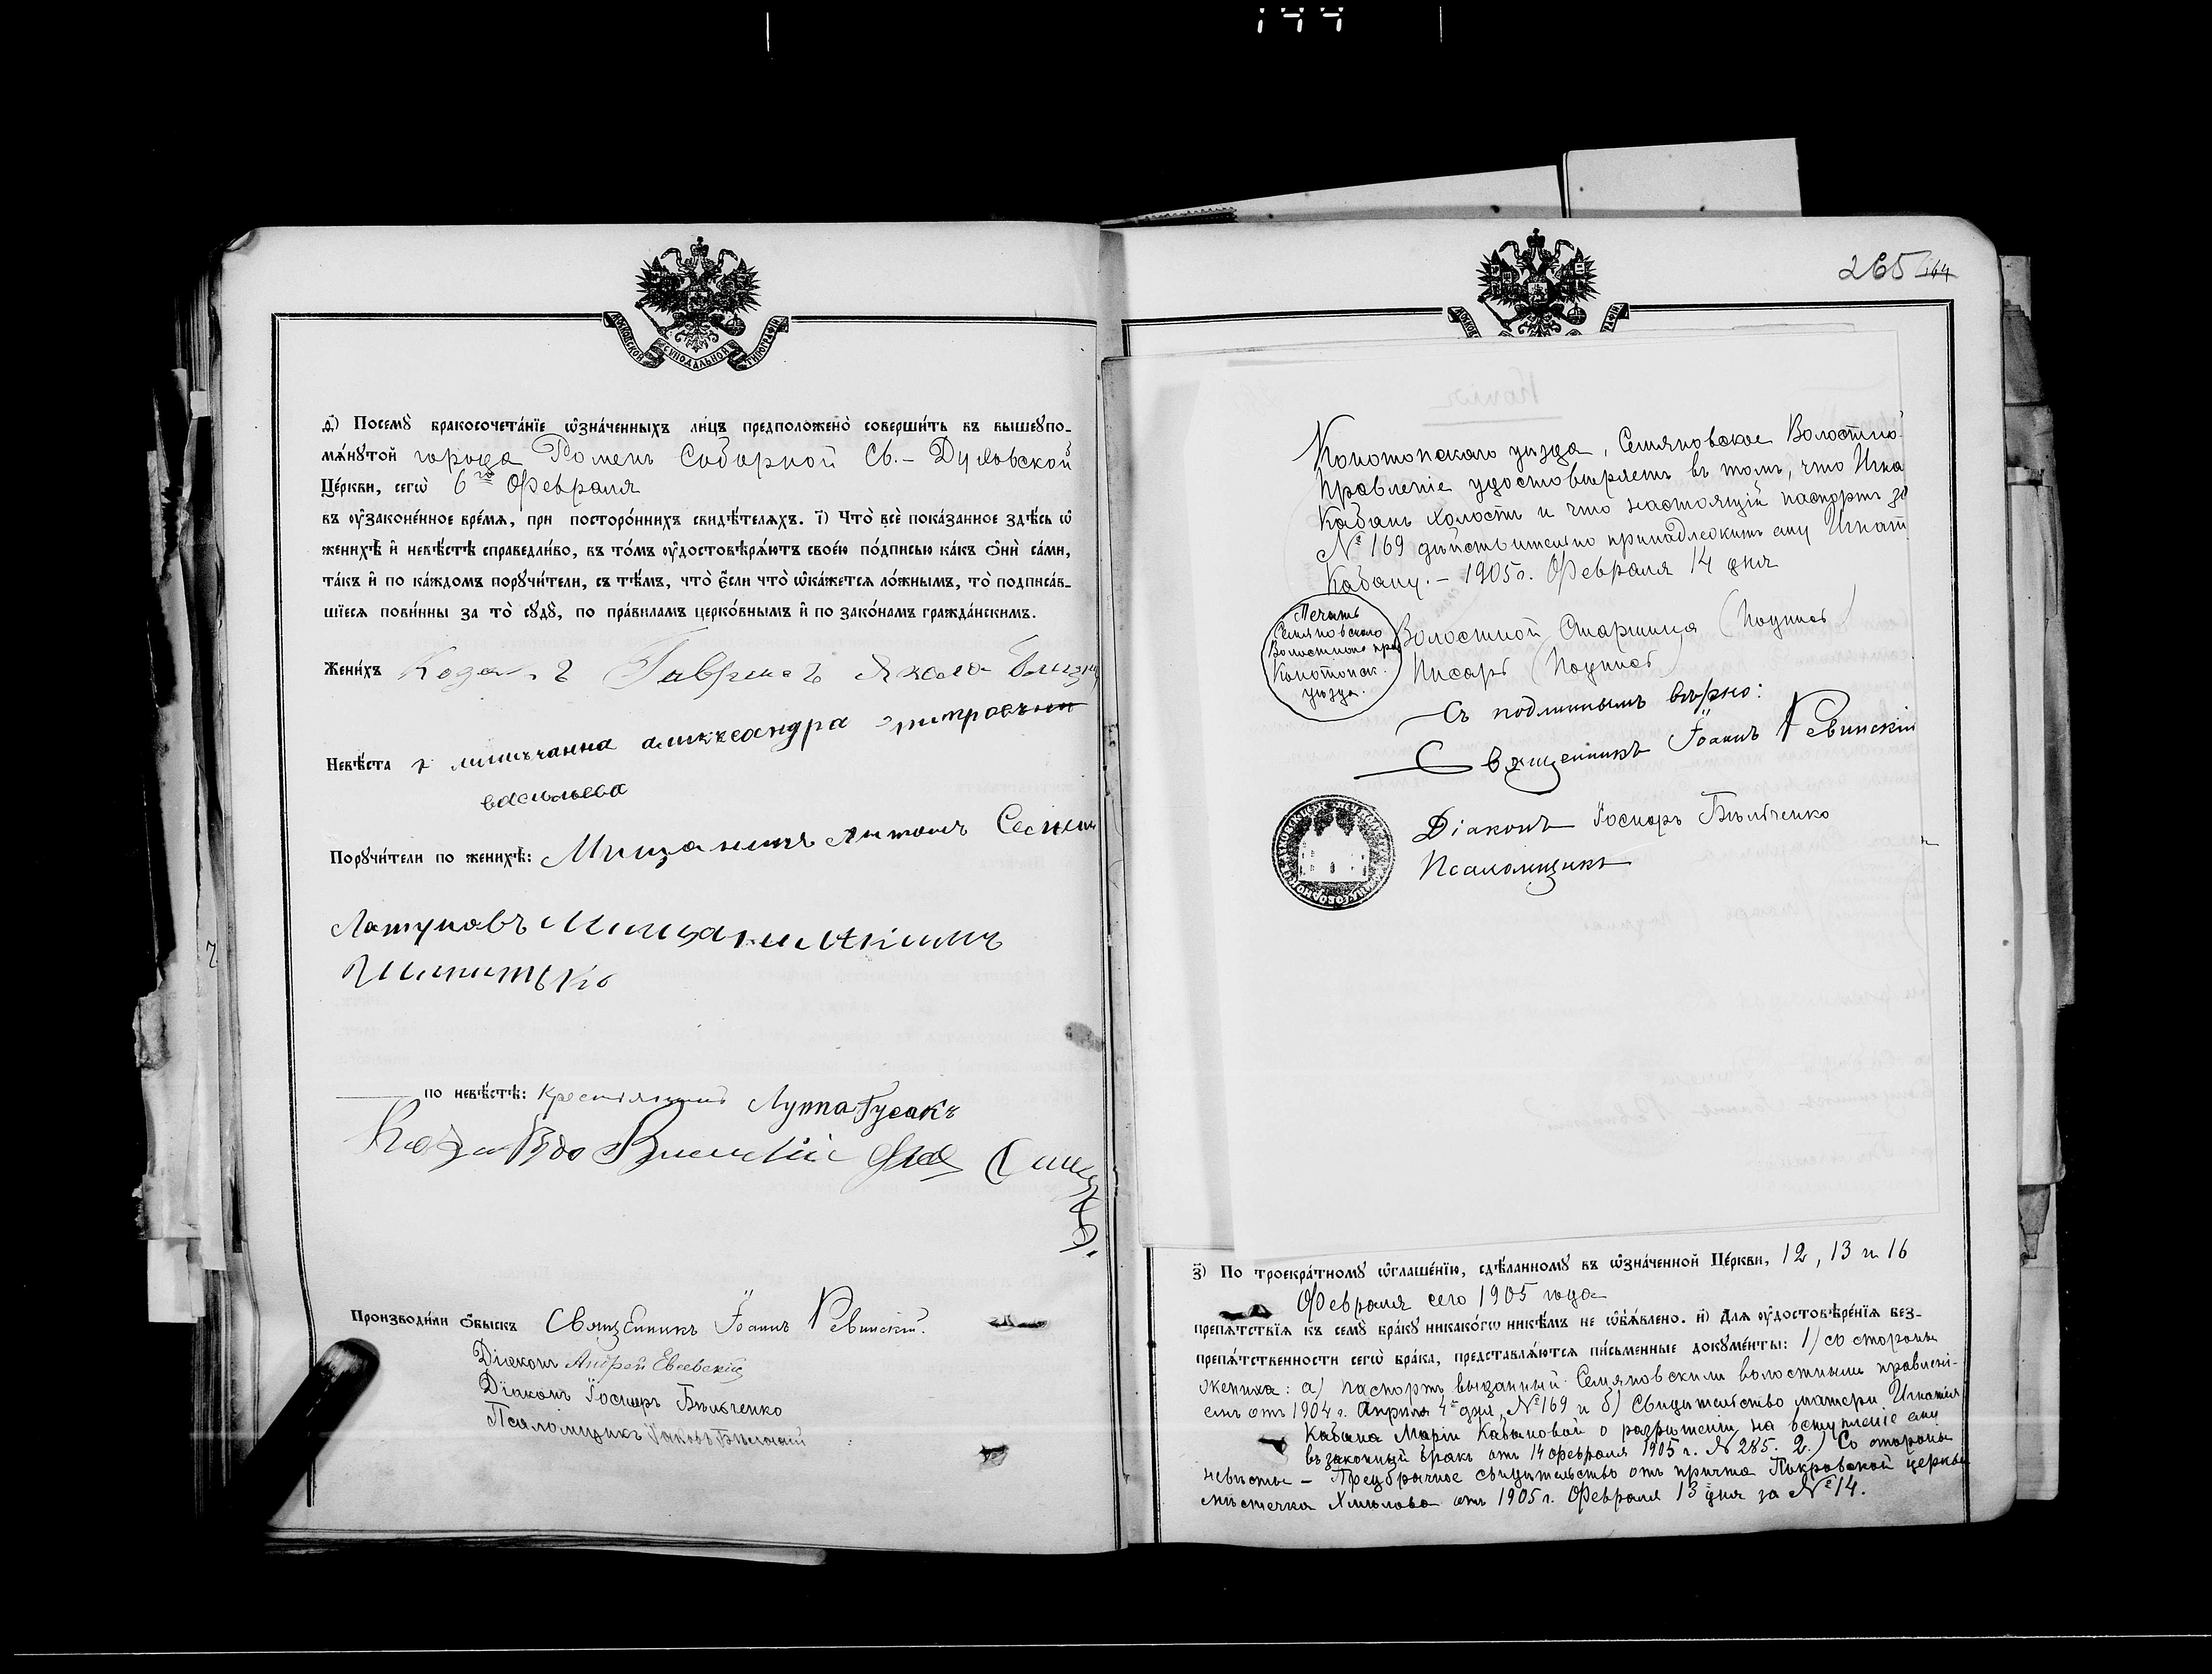 144
МОСКОВСКОЙ СѴНОДАЛЬНОЙ ТИПОГРАФІИ
д҃) Посемꙋ̀ бракосочета́нїе ѡ҆зна́ченныхъ ли́цъ предположено̀ соверши́ть въ вышеꙋпо-
мѧ́нꙋтой города Роменъ Соборной Св.-Духовской
Це́ркви, сегѡ̀ 6го Февраля
въ ᲂу҆зако́не́нное вре́мѧ, при посторо́ннихъ свидѣ́телѧхъ. і҃) Что̀ всѐ пока́занное здѣ́сь ѡ҆
женихѣ̀ и҆ невѣ́стѣ справедли́во, въ то́мъ ᲂу҆достовѣрѧ́ютъ свое́ю по́дписью ка́къ ѻ҆нѝ са́ми,
та́къ и҆ по ка́ждомъ порꙋчи́тели, съ тѣ́мъ, что̀ є҆́сли что̀ ѡ҆ка́жетсѧ ло́жнымъ, то̀ подписа́в-
шїесѧ пови́нны за то̀ сꙋдꙋ̀, по пра́виламъ церко́внымъ и҆ по зако́намъ гражда́нскимъ.
Жени́хъ Козакъ Гавриилъ
Невѣ́ста александра
васильева
Порꙋчи́тели по женихѣ̀: Мищанинъ Антонъ
Латуновъ
по невѣ́стѣ: Крестьянинъ Луппа Гусакъ
Производи́ли ѻ҆́быскъ Священникъ Іоаннъ Ревинскій.
Діаконъ Андрей Евсевскій
Діаконъ Іосифъ Бѣльченко
Псаломщикъ Іаковъ
265 164
Конотопскаго уѣзда, Семяновское Волостно
Правленіе удостовѣряетъ въ томъ, что Игна
Кабанъ холостъ и что настоящій паспортъ за
№ 169 дѣйствительно принадлежитъ ему Игнат
Кабану. – 1905 г. Февраля 14 дня
Печать
Семяновскаго
Волостного пра
Конотопск.
уѣзда.
Волостной Старшина (Подпись)
Писарь (Подпись)
Съ подлиннымъ вѣрно:
Священникъ Іоаннъ Ревинскій
Діаконъ Іосифъ Бѣльченко
Псаломщикъ
з҃) По троекра́тномꙋ ѡ҆глаше́нїю, сдѣ́ланномꙋ въ ѡ҆зна́ченной Це́ркви, 12, 13 и 16
Февраля сего 1905 года
препѧ́тствїѧ къ семꙋ̀ бра́кꙋ никако́гѡ никѣ́мъ не ѡ҆б̾ѧ́влено. и҃) Для ᲂу҆достовѣре́нїѧ без-
препѧ́тственности сегѡ̀ бра́ка, представлѧ́ютсѧ пи́сьменные докꙋме́нты: 1) со стороны
жениха: а) паспортъ выданный Семяновскимъ волостнымъ правлені-
емъ отъ 1904 г. Апрѣля 4го дня, № 169 и б) Свидѣтельство матери Игнатія
Кабана Маріи Кабановой о разрѣшеніи на вступленіе ему
въ законный бракъ отъ 14 февраля 1905 г. № 285. 2.) Со стороны
невѣсты – Предбрачное свидѣтельство отъ причта Покровской церкви
мѣстечка Хмѣлова отъ 1905 г. Февраля 13 дня за № 14.